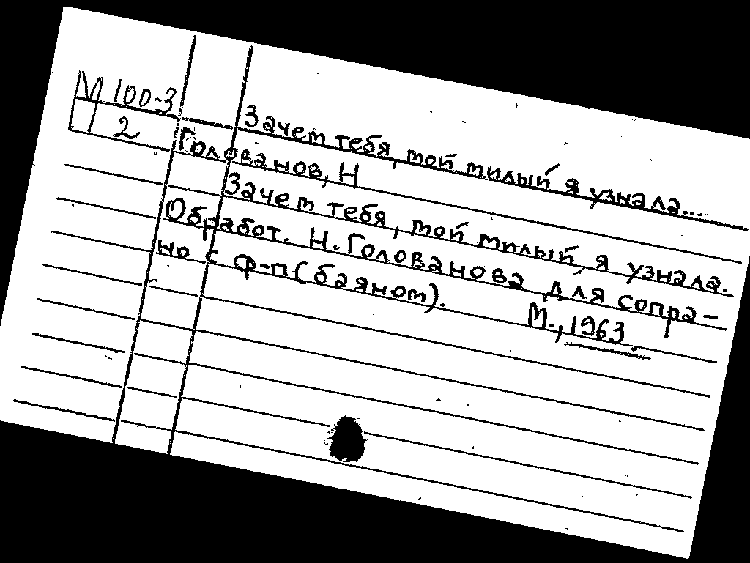 М 100-3
2
Зачем тебя, мой милый я узнала...
Голованов, Н
Зачем тебя, мой милый, я узнала.
Обработ. Н. Голованова для сопра-
но с ф-п (баяном).
М., 1963.